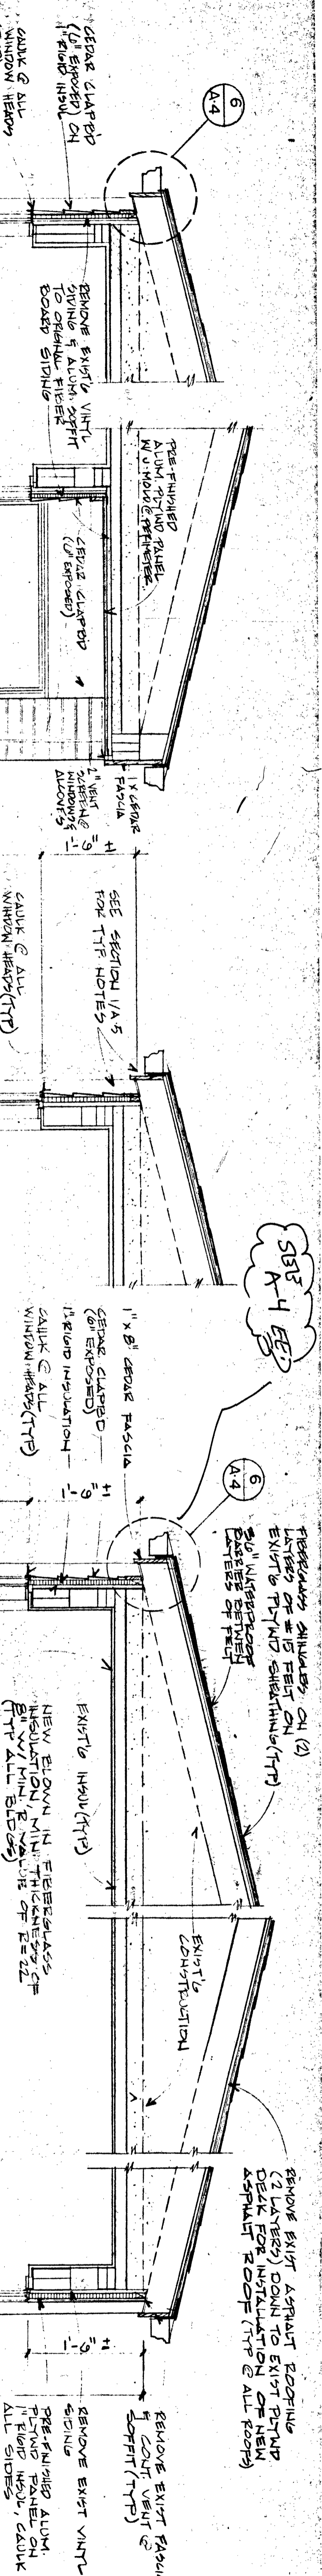 CEDAR CLAP'BD
(6" EXPOSED) ON
1" RIGID INSUL
CAULK @ ALL
WINDOW HEADS
6
A·4
REMOVE EXIST'G VINYL
SIDING & ALUM. SOFFIT
TO ORIGINAL FIBER
BOARD SIDING
CEDAR CLAP'BD
(6" EXPOSED)
PRE-FINISHED
ALUM. PLYWD PANEL
W/ J-MOLD @ PERIMETER
1 X CEDAR
FASCIA
2" VENT
SCREEN @
WINDOWS &
ALCOVES
±1'-9"
CAULK @ ALL
WINDOW HEADS (TYP)
SEE SECTION 1/A·5
FOR TYP NOTES
SEE
A-4
6
A·4
1" X 8" CEDAR FASCIA
CEDAR CLAP'BD
(6" EXPOSED)
1" RIGID INSULATION
CAULK @ ALL
WINDOW HEADS (TYP)
±1'-9"
FIBERGLASS SHINGLES ON (2)
LAYERS OF #15 FELT ON
EXIST'G PLYWD SHEATHING (TYP)
36" WATERPROOF
BARRIER BETWEEN
LAYERS OF FELT
EXIST'G INSUL (TYP)
NEW BLOWN IN FIBERGLASS
INSULATION, MIN. THICKNESS OF
8" W/ MIN. R VALUE OF R=22
(TYP ALL BLDGS)
EXIST'G
CONSTRUCTION
REMOVE EXIST ASPHALT ROOFING
(2 LAYERS) DOWN TO EXIST PLYWD
DECK FOR INSTALLATION OF NEW
ASPHALT ROOF (TYP @ ALL ROOFS)
±1'-9"
REMOVE EXIST FASCIA
& CONT VENT @
SOFFIT (TYP)
REMOVE EXIST VINYL
SIDING
PRE-FINISHED ALUM.
PLYWD PANEL ON
1" RIGID INSUL, CAULK
ALL SIDES